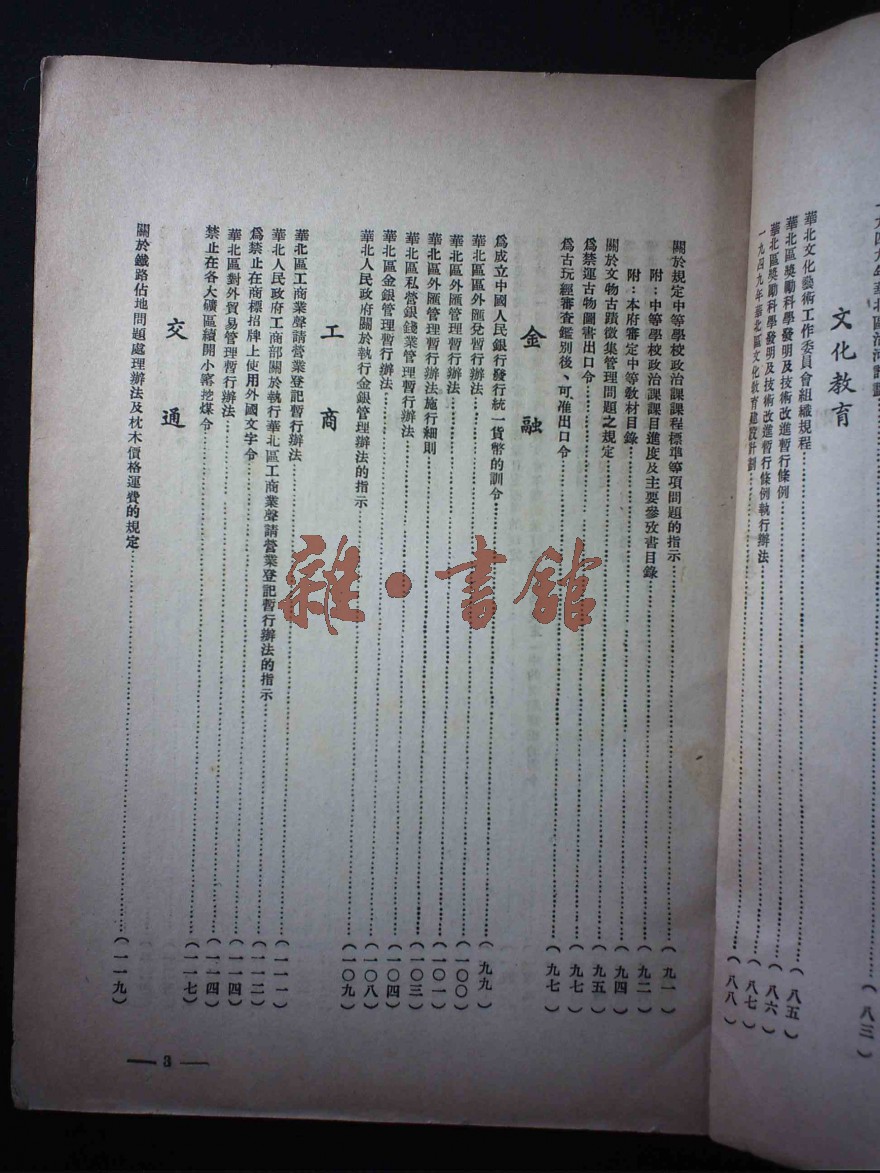 一九四九年華北區治河計劃……（八三）
文化教育
華北文化藝術工作委員會組織規程……（八五）
華北區獎勵科學發明及技術改進暫行條例……（八六）
華北區獎勵科學發明及技術改進暫行條例執行辦法……（八七）
一九四九年華北區文化教育建設計劃……（八八）
關於規定中等學校政治課課程標準等項問題的指示……（九一）
附：中等學校政治課課目進度及主要參攷書目錄……（九二）
附：本府審定中等教材目錄……（九四）
關於文物古蹟徵集管理問題之規定……（九五）
爲禁運古物圖書出口令……（九七）
爲古玩經審查鑑別後、可准出口令……（九七）
金融
爲成立中國人民銀行發行統一貨幣的訓令……（九九）
華北區區外匯兌暫行辦法……（一〇〇）
華北區外匯管理暫行辦法……（一〇一）
華北區外匯管理暫行辦法施行細則……（一〇三）
華北區私營銀錢業管理暫行辦法……（一〇四）
華北區金銀管理暫行辦法……（一〇八）
華北人民政府關於執行金銀管理辦法的指示……（一〇九）
工商
華北區工商業聲請營業登記暫行辦法……（一一一）
華北人民政府工商部關於執行華北區工商業聲請營業登記暫行辦法的指示……（一一二）
爲禁止在商標招牌上使用外國文字令……（一一四）
華北區對外貿易管理暫行辦法……（一一四）
禁止在各大礦區續開小窰挖煤令……（一一七）
交通
關於鐵路佔地問題處理辦法及枕木價格運費的規定……（一一九）
— 3 —
雜·書館